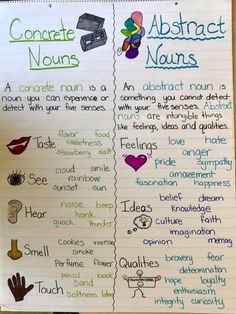 Concrete
Nouns
A concrete noun is a
noun you can experience or
detect with your five senses.
flavor food
Taste sweetness
strawberry salt
cloud smile
See rainbow
sunset sun
noise beep
Hear honk
quack thunder
Cookies
Smell smoke
Perfume flower
pencil book
Touch sand
softness
Abstract
Nouns
An abstract noun is
something you cannot detect
with your five senses. Abstract
nouns are intangible things
like feelings, ideas and qualities.
Feelings love hate
anger
pride sympathy
amazement
fascination happiness
belief dream
Ideas knowledge
culture faith
imagination
opinion memory
Qualities bravery fear
determination
hope loyalty
enthusiasm
integrity curiosity